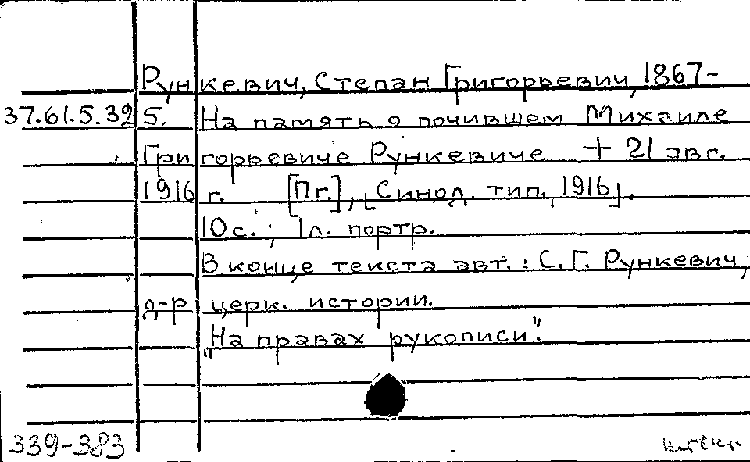 Рункевич, Степан Григорьевич, 1867-
37.61.5.395. На память о почившем Михаиле
Григорьевиче Рункевиче + 21 авг.
1916 г. [Пг.], [Синод. тип., 1916].
10 с.; 1 л. портр.
В конце текста авт.: С. Г. Рункевич,
д-р церк. истории.
"На правах рукописи".
339-383